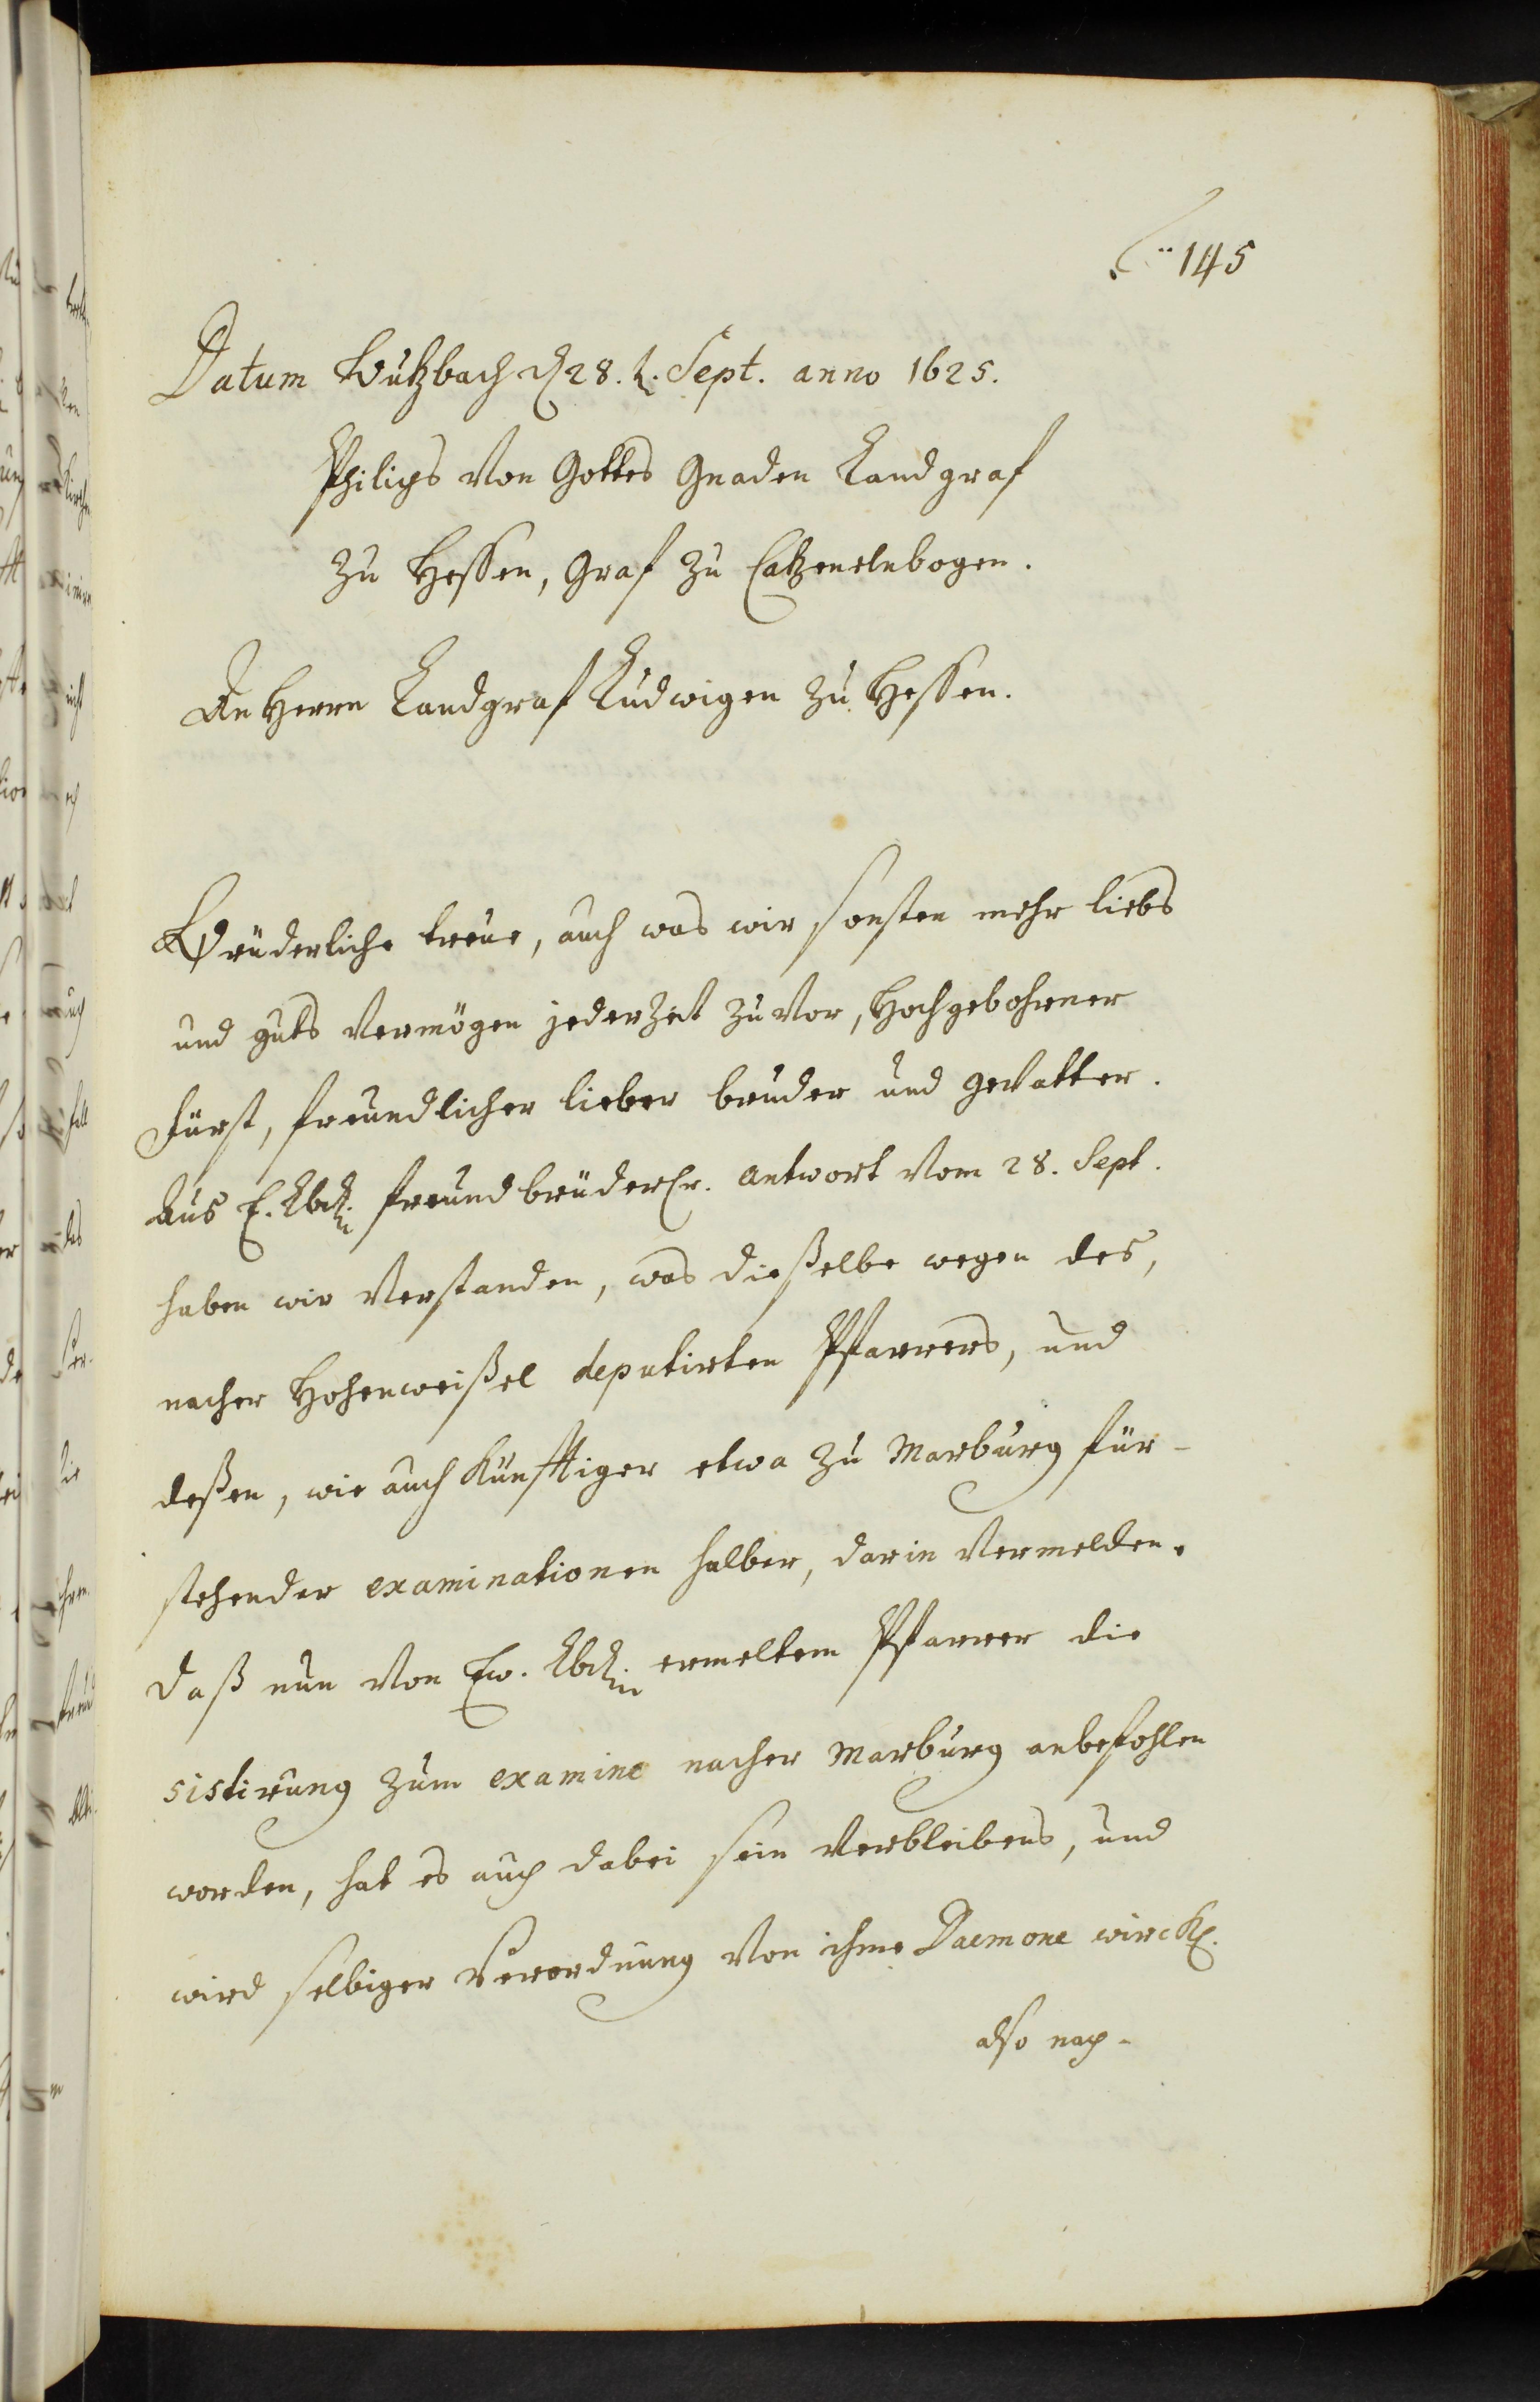 145
Datum Butzbach d 28. t. Sept. anno 1625.
Philips von Gottes Gnaden Landgraf
zu Hessen, Graf zu Catzenelnbogen.
An Herrn Landgraf Ludwigen zu Hessen.
Brüderliche treue, auch was wir sonsten mehr liebs
und guts vermögen jederzeit zuvor, Hochgebohrner
Fürst, freundlicher lieber bruder und gevatter.
Aus E. Lbd. freundbrüderlr. antwort vom 28. Sept.
haben wir verstanden, was dieselbe wegen des,
nacher Hohenweißel deputirten Pfarrers, und
deßen, wie auch künfftiger etwa zu Marburg für-
stehender examinationen halber, darin vermelden.
Daß nun von Ew. Lbd. ermeltem Pfarrer die
sistirung zum examine nacher Marburg anbefohlen
worden, hat es auch dabei sein verbleibens, und
wird selbiger Verordnung von ihme Daemone wirckl.
also nach-